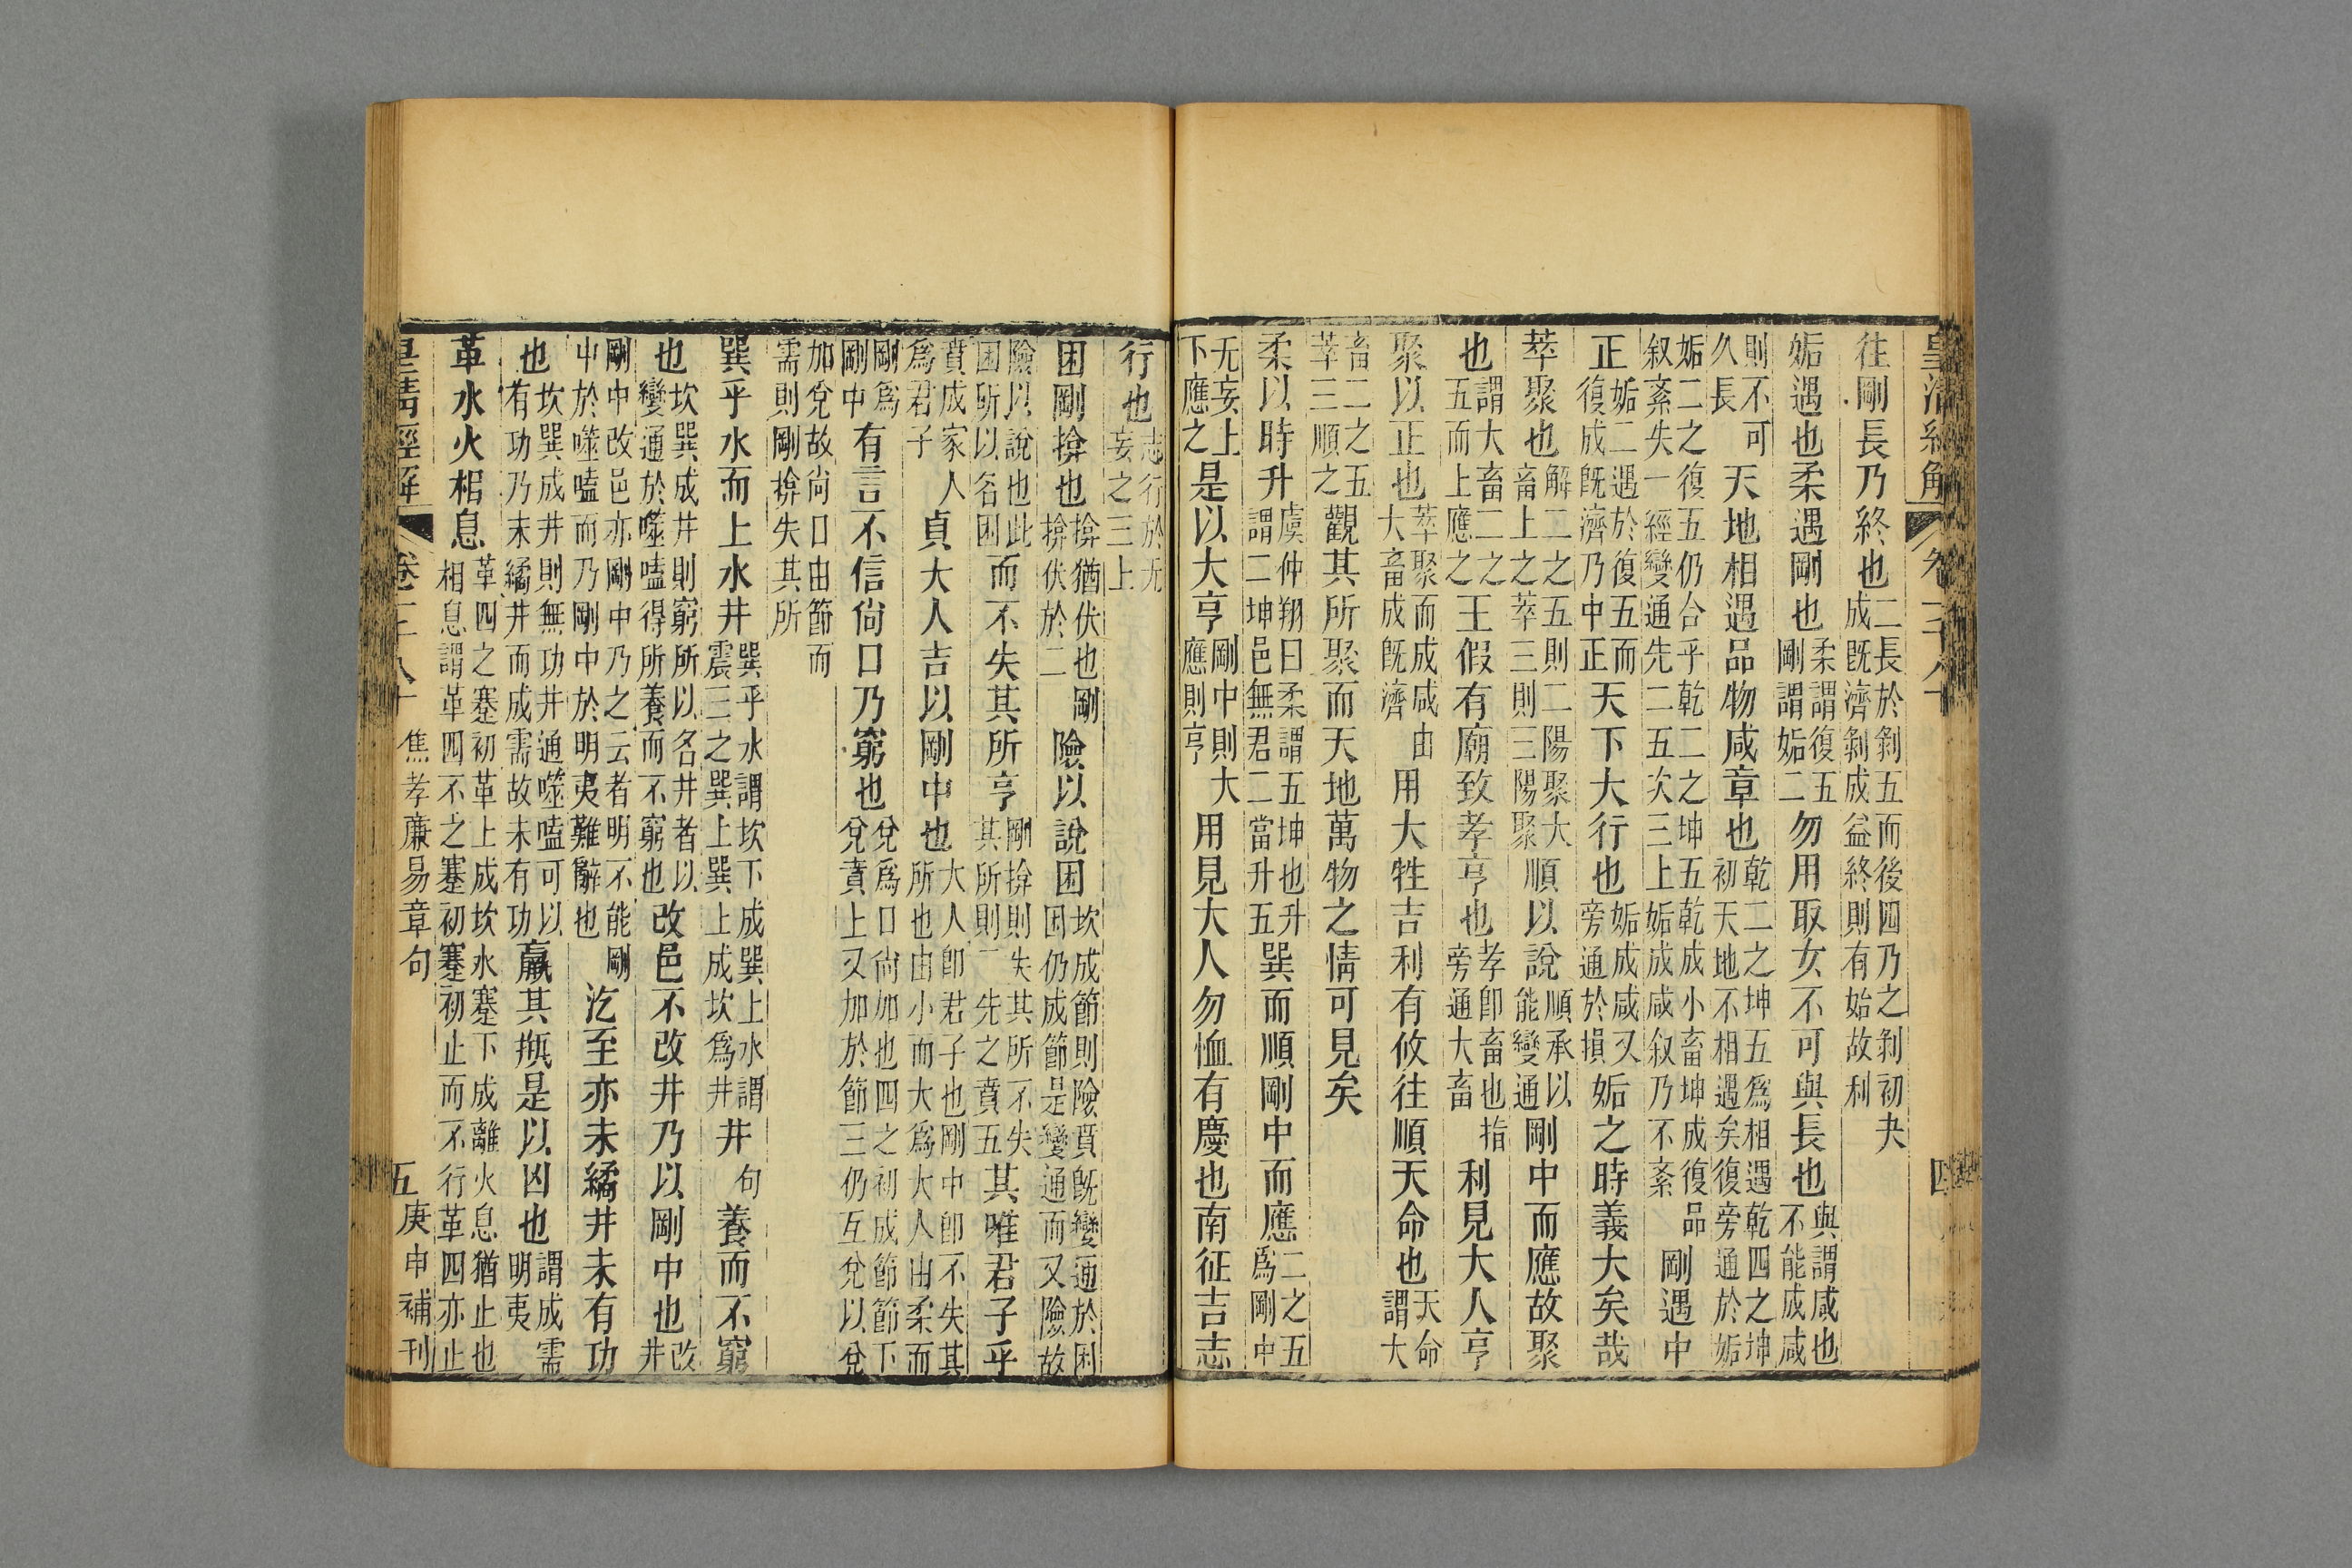 皇清經解　卷一千八十　四
往剛長乃終也二長於剝五而後四乃之剝初夬
成旣濟剝成益終則有始故利
姤遇也柔遇剛也柔謂復五
剛謂姤二勿用取女不可與長也與謂咸也
不能成咸
則不可
久長天地相遇品物咸章也乾二之坤五爲相遇乾四之坤
初天地不相遇矣復旁通於姤
姤二之復五仍合乎乾二之坤五乾成小畜坤成復品
叙紊失一經變通先二五次三上姤成咸叙乃不紊剛遇中
正姤二遇於復五而
復成旣濟乃中正天下大行也姤成咸又
旁通於損姤之時義大矣哉
萃聚也解二之五則二陽聚大
畜上之萃三則三陽聚順以說順承以
能變通剛中而應故聚
也謂大畜二之
五而上應之王假有廟致孝亨也孝卽畜也指
旁通大畜利見大人亨
聚以正也萃聚而成咸由
大畜成旣濟用大牲吉利有攸往順天命也天命
謂大
畜二之五
萃三順之觀其所聚而天地萬物之情可見矣
柔以時升虞仲翔曰柔謂五坤也升
謂二坤邑無君二當升五巽而順剛中而應二之五
爲剛中
无妄上
下應之是以大亨剛中則大
應則亨用見大人勿恤有慶也南征吉志
行也志行於无
妄之三上
困剛揜也揜猶伏也剛
揜伏於二險以說困坎成節則險賁旣變通於困
困仍成節是變通而又險故
險以說也此
困所以名困而不失其所亨剛揜則失其所不失
其所則二先之賁五其唯君子乎
賁成家人
爲君子貞大人吉以剛中也大人卽君子也剛中卽不失其
所也由小而大爲大人由柔而
剛爲
剛中有言不信尙口乃窮也兌爲口尙加也四之初成節節下
兌賁上又加於節三仍互兌以兌
加兌故尙口由節而
需則剛揜失其所
巽乎水而上水井巽乎水謂坎下成巽上水謂
震三之巽上巽上成坎爲井井句養而不窮
也坎巽成井則窮所以名井者以
變通於噬嗑得所養而不窮也改邑不改井乃以剛中也改
井
剛中改邑亦剛中乃之云者明不能剛
中於噬嗑而乃剛中於明夷難辭也汔至亦未繘井未有功
也坎巽成井則無功井通噬嗑可以
有功乃未繘井而成需故未有功羸其瓶是以凶也謂成需
明夷
革水火相息革四之蹇初革上成坎水蹇下成離火息猶止也
相息謂革四不之蹇初蹇初止而不行革四亦止
皇清經解　卷一千八十　焦孝廉易章句　五　庚申補刊